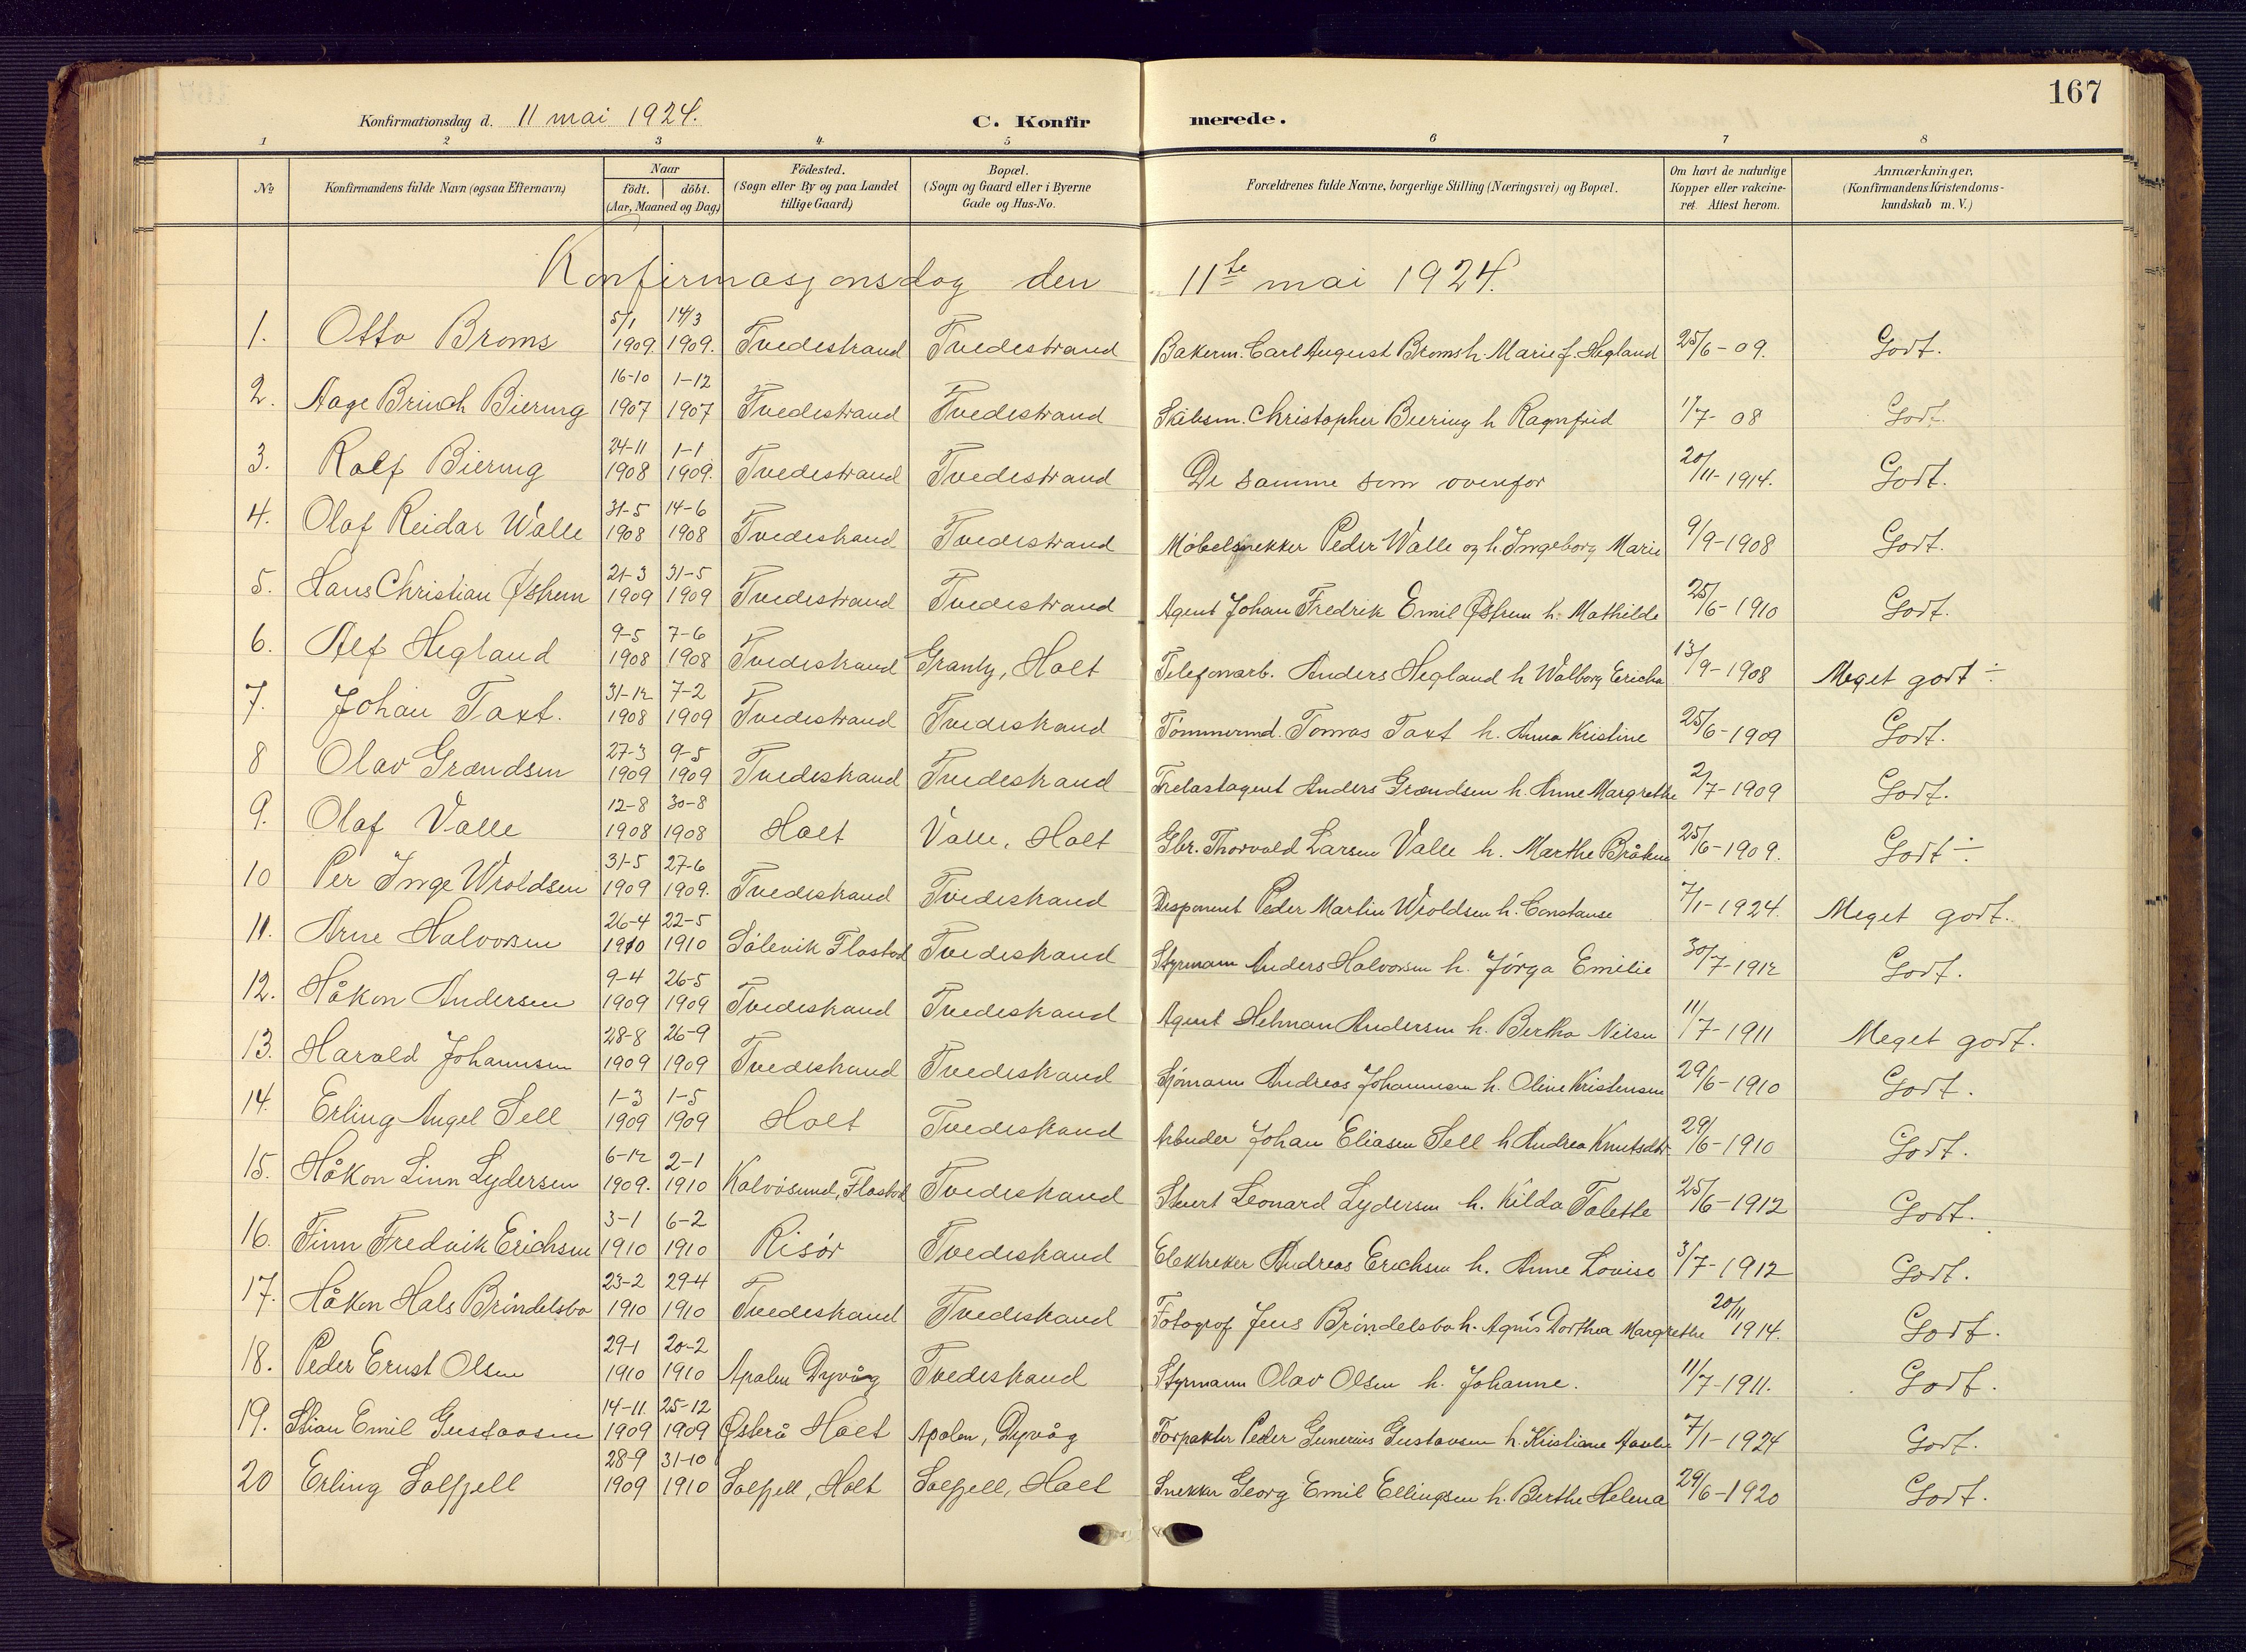 167
Konfirmationsdag d. 11 mai 1924.
C. Konfirmerede.
1 2 3 4 5 6 7 8
No
Konfirmandens fulde Navn (ogsaa Efternavn)
Naar
födt. döbt.
(Aar, Maaned og Dag)
Födested.
(Sogn eller By og paa Landet
tillige Gaard)
Bopæl.
(Sogn og Gaard eller i Byerne
Gade og Hus-No.
Forældrenes fulde Navne, borgerlige Stilling (Næringsvei) og Bopæl.
Om havt de naturlige
Kopper eller vakcine-
ret. Attest herom.
Anmærkninger,
(Konfirmandens Kristendoms-
kundskab m. V.)
Konfirmasjonsdag den 11te mai 1924.
1. Otto Broms 5/1 1909. 14/3 1909. Tvedestrand Tvedestrand Bakerm. Carl August Broms h. Marie f. Hegland 25/6-09. Godt.
2. Aage Brinch Biering 16-10 1907 1-12 1907 Tvedestrand Tvedestrand Skibsm. Christopher Biering h Ragnfrid 1/7-08 Godt.
3. Rolf Biering 24-11 1908 1-1 1909. Tvedestrand Tvedestrand De samme som ovenfor 20/11-1914. Godt.
4. Olaf Reidar Walle 31-5 1908 14-6 1908 Tvedestrand Tvedestrand Møbelsnekker Peder Walle og h. Ingeborg Marie 9/9-1908 Godt.
5. Hans Christian Østrem 21-3 1909 31-5 1909 Tvedestrand Tvedestrand Agent Johan Fredrik Emil Østrem h. Mathilde 25/6-1910 Godt.
6. Alf Hegland 9-5 1908 7-6 1908 Tvedestrand Granly, Holt Telefonarb. Anders Hegland h Walborg Ericha 13/9-1908 Meget godt ÷
7. Johan Taxt. 31-12 1908 7-2 1909 Tvedestrand Tvedestrand Tømmermd. Tomas Taxt h. Anna Kristine 25/6-1909 Godt.
8 Olav Grændsen 27-3 1909 9-5 1909 Tvedestrand Tvedestrand Trelastagent Anders Grændsen h. Anne Margrethe 2/7-1909 Godt.
9. Olaf Valle 12-8 1908 30-8 1908 Holt Valle, Holt Gbr. Thorvald Larsen Valle h. Marthe Bråten 25/6-1909. Godt ÷
10 Per Inge Wroldsen 31-5 1909 27-6 1909. Tvedestrand Tvedestrand Disponent Peder Martin Wroldsen h. Constanse 7/1-1924. Meget godt.
11. Arne Halvorsen 26-4 1910 22-5 1910 Sålevik Flostad Tvedestrand Styrmann Anders Halvorsen h. Jörga Emilie 30/7-1912 Godt.
12. Håkon Andersen 9-4 1909 26-5 1909 Tvedestrand Tvedestrand Agent Helman Andersen h. Bertha Nilsen 11/7-1911 Meget godt.
13. Harald Johannsen 28-8 1909 26-9 1909 Tvedestrand Tvedestrand Sjömann Andreas Johannsen h. Oline Kristensen 29/6-1910 Godt.
14. Erling Angel Sell 1-3 1909 1-5 1909 Holt Tvedestrand Arbeider Johan Eliasen Sell h Andrea Knutsdtr. 29/6-1910 Godt.
15. Håkon Linn Lydersen 6-12 1909. 2-1 1910 Kalvösund, Flostad Tvedestrand Stuert Leonard Lydersen h. Kilda Talette 25/6-1912 Godt.
16. Finn Fredrik Erichsen 3-1 1910 6-2 1910 Risör Tvedestrand Elektreker Andreas Erichsen h. Anne Lovise 3/7-1912 Godt.
17. Håkon Hals Bröndelsbo 23-2 1910 29-4 1910 Tvedestrand Tvedestrand Fotograf Jens Bröndelsbo h. Agnes Dorthea Margrethe 20/11 1914. Godt.
18. Peder Ernst Olsen 29-1 1910 20-2 1910 Apalen Dyvåg Tvedestrand Styrmann Olav Olsen h. Johanne. 11/7-1911. Godt.
19. Stian Emil Gustavsen 14-11. 1909 25-12 1909 Østerå Holt Apalen, Dyvåg Forpakter Peder Gunerius Gustavsen h. Kristiane 7/1-1924 Godt.
20 Erling Solfjell 28-9 1909 31-10 1910 Solfjell, Holt Solfjell, Holt Snekker Georg Emil Ellingsen h. Berthe Helena 29/6-1920 Godt.